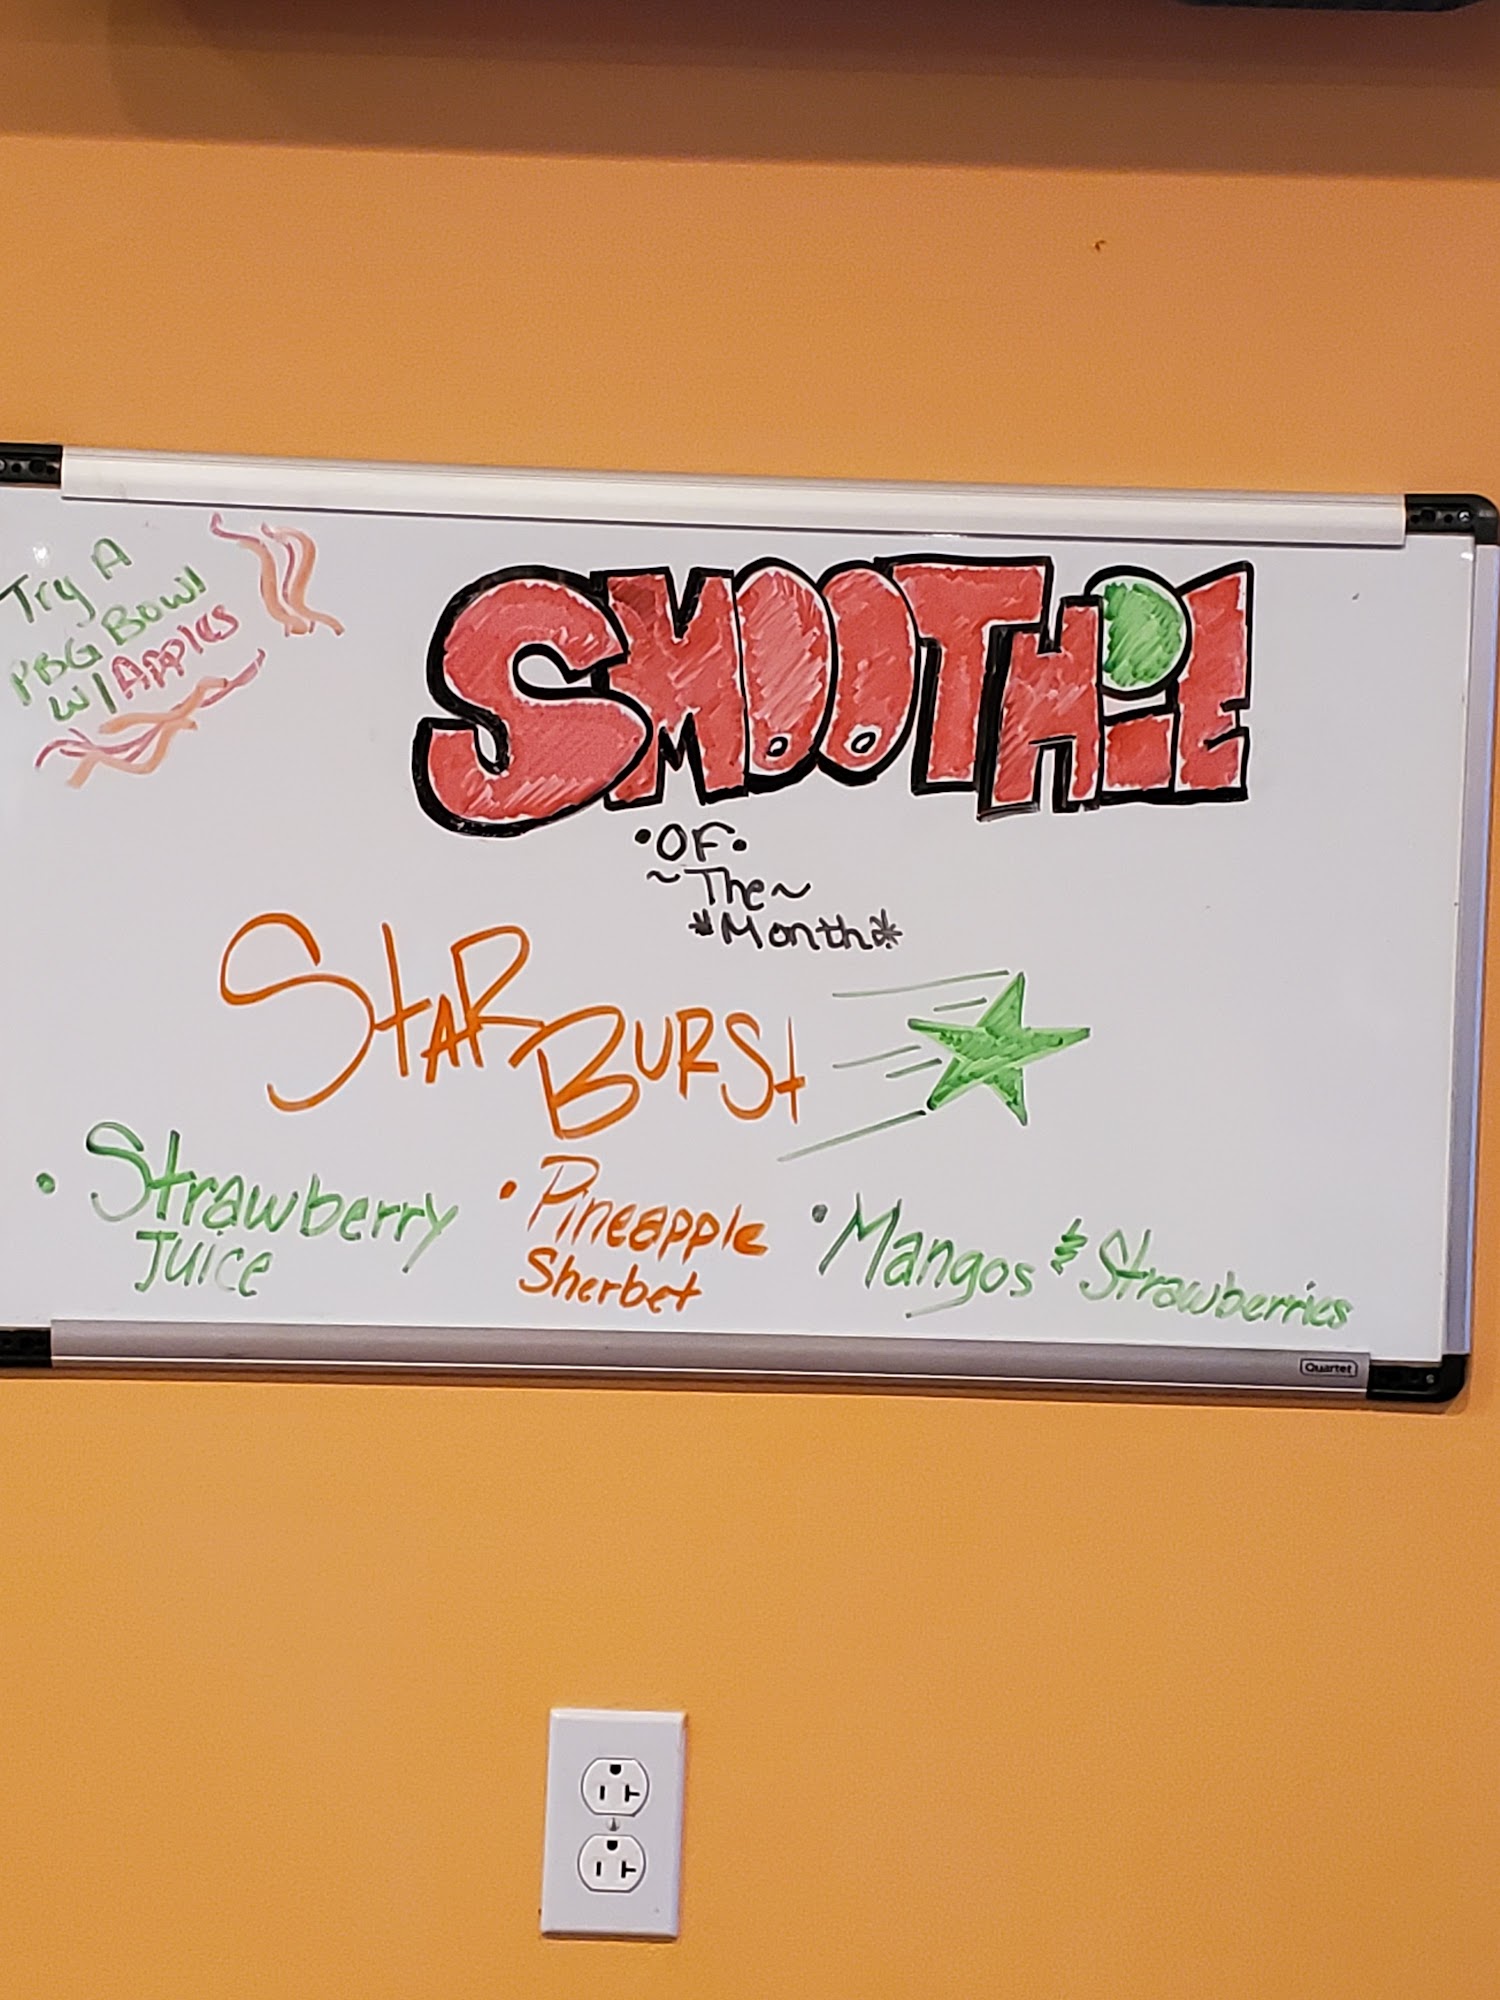 Try A
PBG Bowl
w/ APPles
SMOOTHiE
•OF•
~The~
*Month*
StaR BURSt
• Strawberry Juice
• Pineapple Sherbet
• Mangos & Strawberries
Quartet